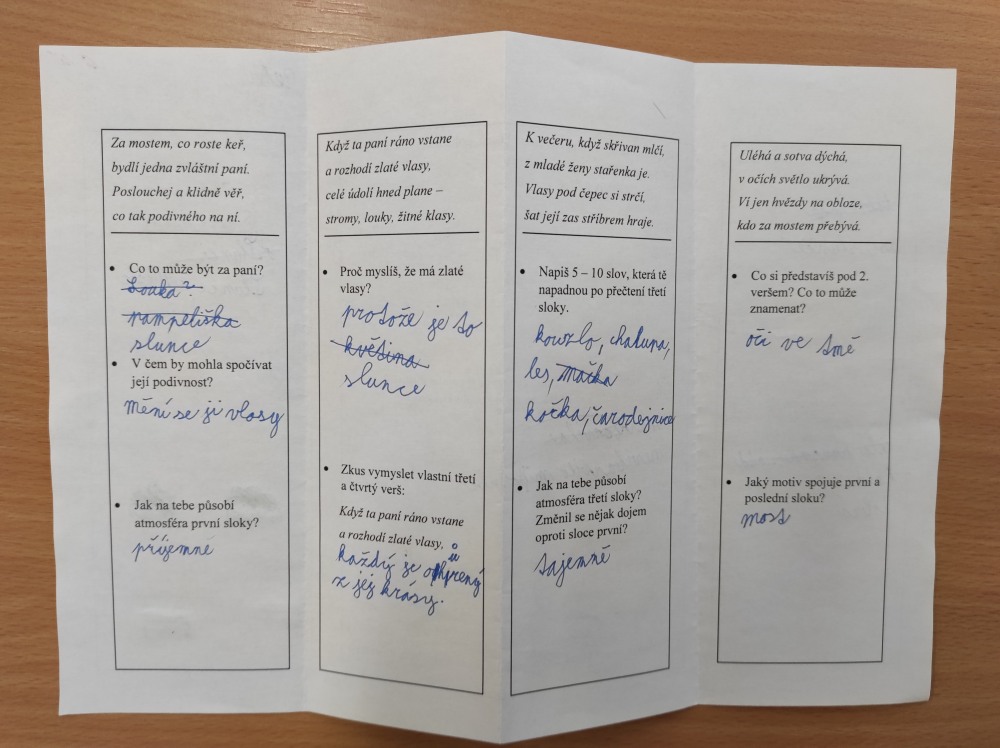 Za mostem, co roste keř,
bydlí jedna zvláštní paní.
Poslouchej a klidně věř,
co tak podivného na ní.
• Co to může být za paní?
Louka?
rampeliška
slunce
• V čem by mohla spočívat
její podivnost?
mění se ji vlasy
• Jak na tebe působí
atmosféra první sloky?
příjemně
Když ta paní ráno vstane
a rozhodí zlaté vlasy,
celé údolí hned plane –
stromy, louky, žitné klasy.
• Proč myslíš, že má zlaté
vlasy?
protože je to
květina
slunce
• Zkus vymyslet vlastní třetí
a čtvrtý verš:
Když ta paní ráno vstane
a rozhodí zlaté vlasy,
každý je
z jej krásy.
K večeru, když skřivan mlčí,
z mladé ženy stařenka je.
Vlasy pod čepec si strčí,
šat její zas stříbrem hraje.
• Napiš 5 – 10 slov, která tě
napadnou po přečtení třetí
sloky.
kouzlo, chalupa,
les, mačka
kočka, čarodejnice
• Jak na tebe působí
atmosféra třetí sloky?
Změnil se nějak dojem
oproti sloce první?
tajemně
Uléhá a sotva dýchá,
v očích světlo ukrývá.
Ví jen hvězdy na obloze,
kdo za mostem přebývá.
• Co si představíš pod 2.
veršem? Co to může
znamenat?
oči ve tmě
• Jaký motiv spojuje první a
poslední sloku?
most